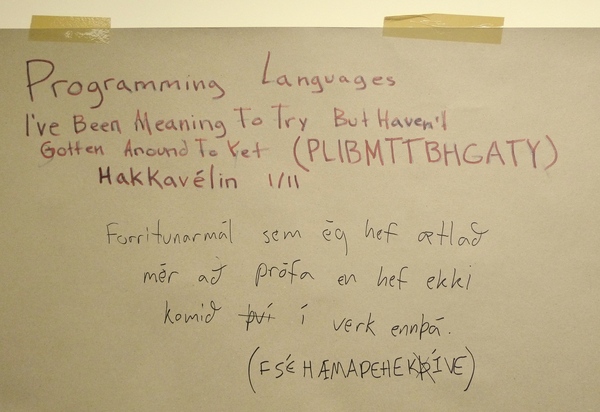 Programming Languages
I've Been Meaning To Try But Haven't
Gotten Around To Yet (PLIBMTTBHGATY)
Hakkavélin 1/11
Forritunarmál sem ég hef ætlað
mér að prófa en hef ekki
komið því í verk ennþá.
(FSÉHÆMAPEHEKÞÍVE)